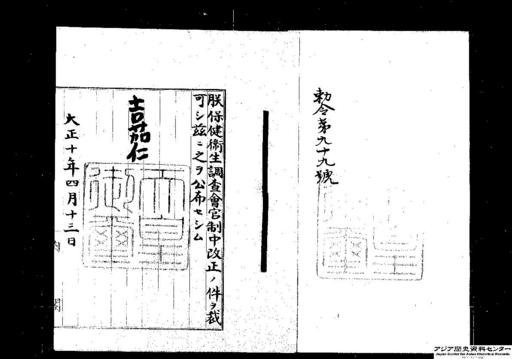 勅令第九十九號
朕保健衞生調査會官制中改正ノ件ヲ裁
可シ茲ニ之ヲ公布セシム
嘉仁
天皇御璽
大正十年四月十三日
内閣
アジア歴史資料センター
Japan Center for Asian Historical Records